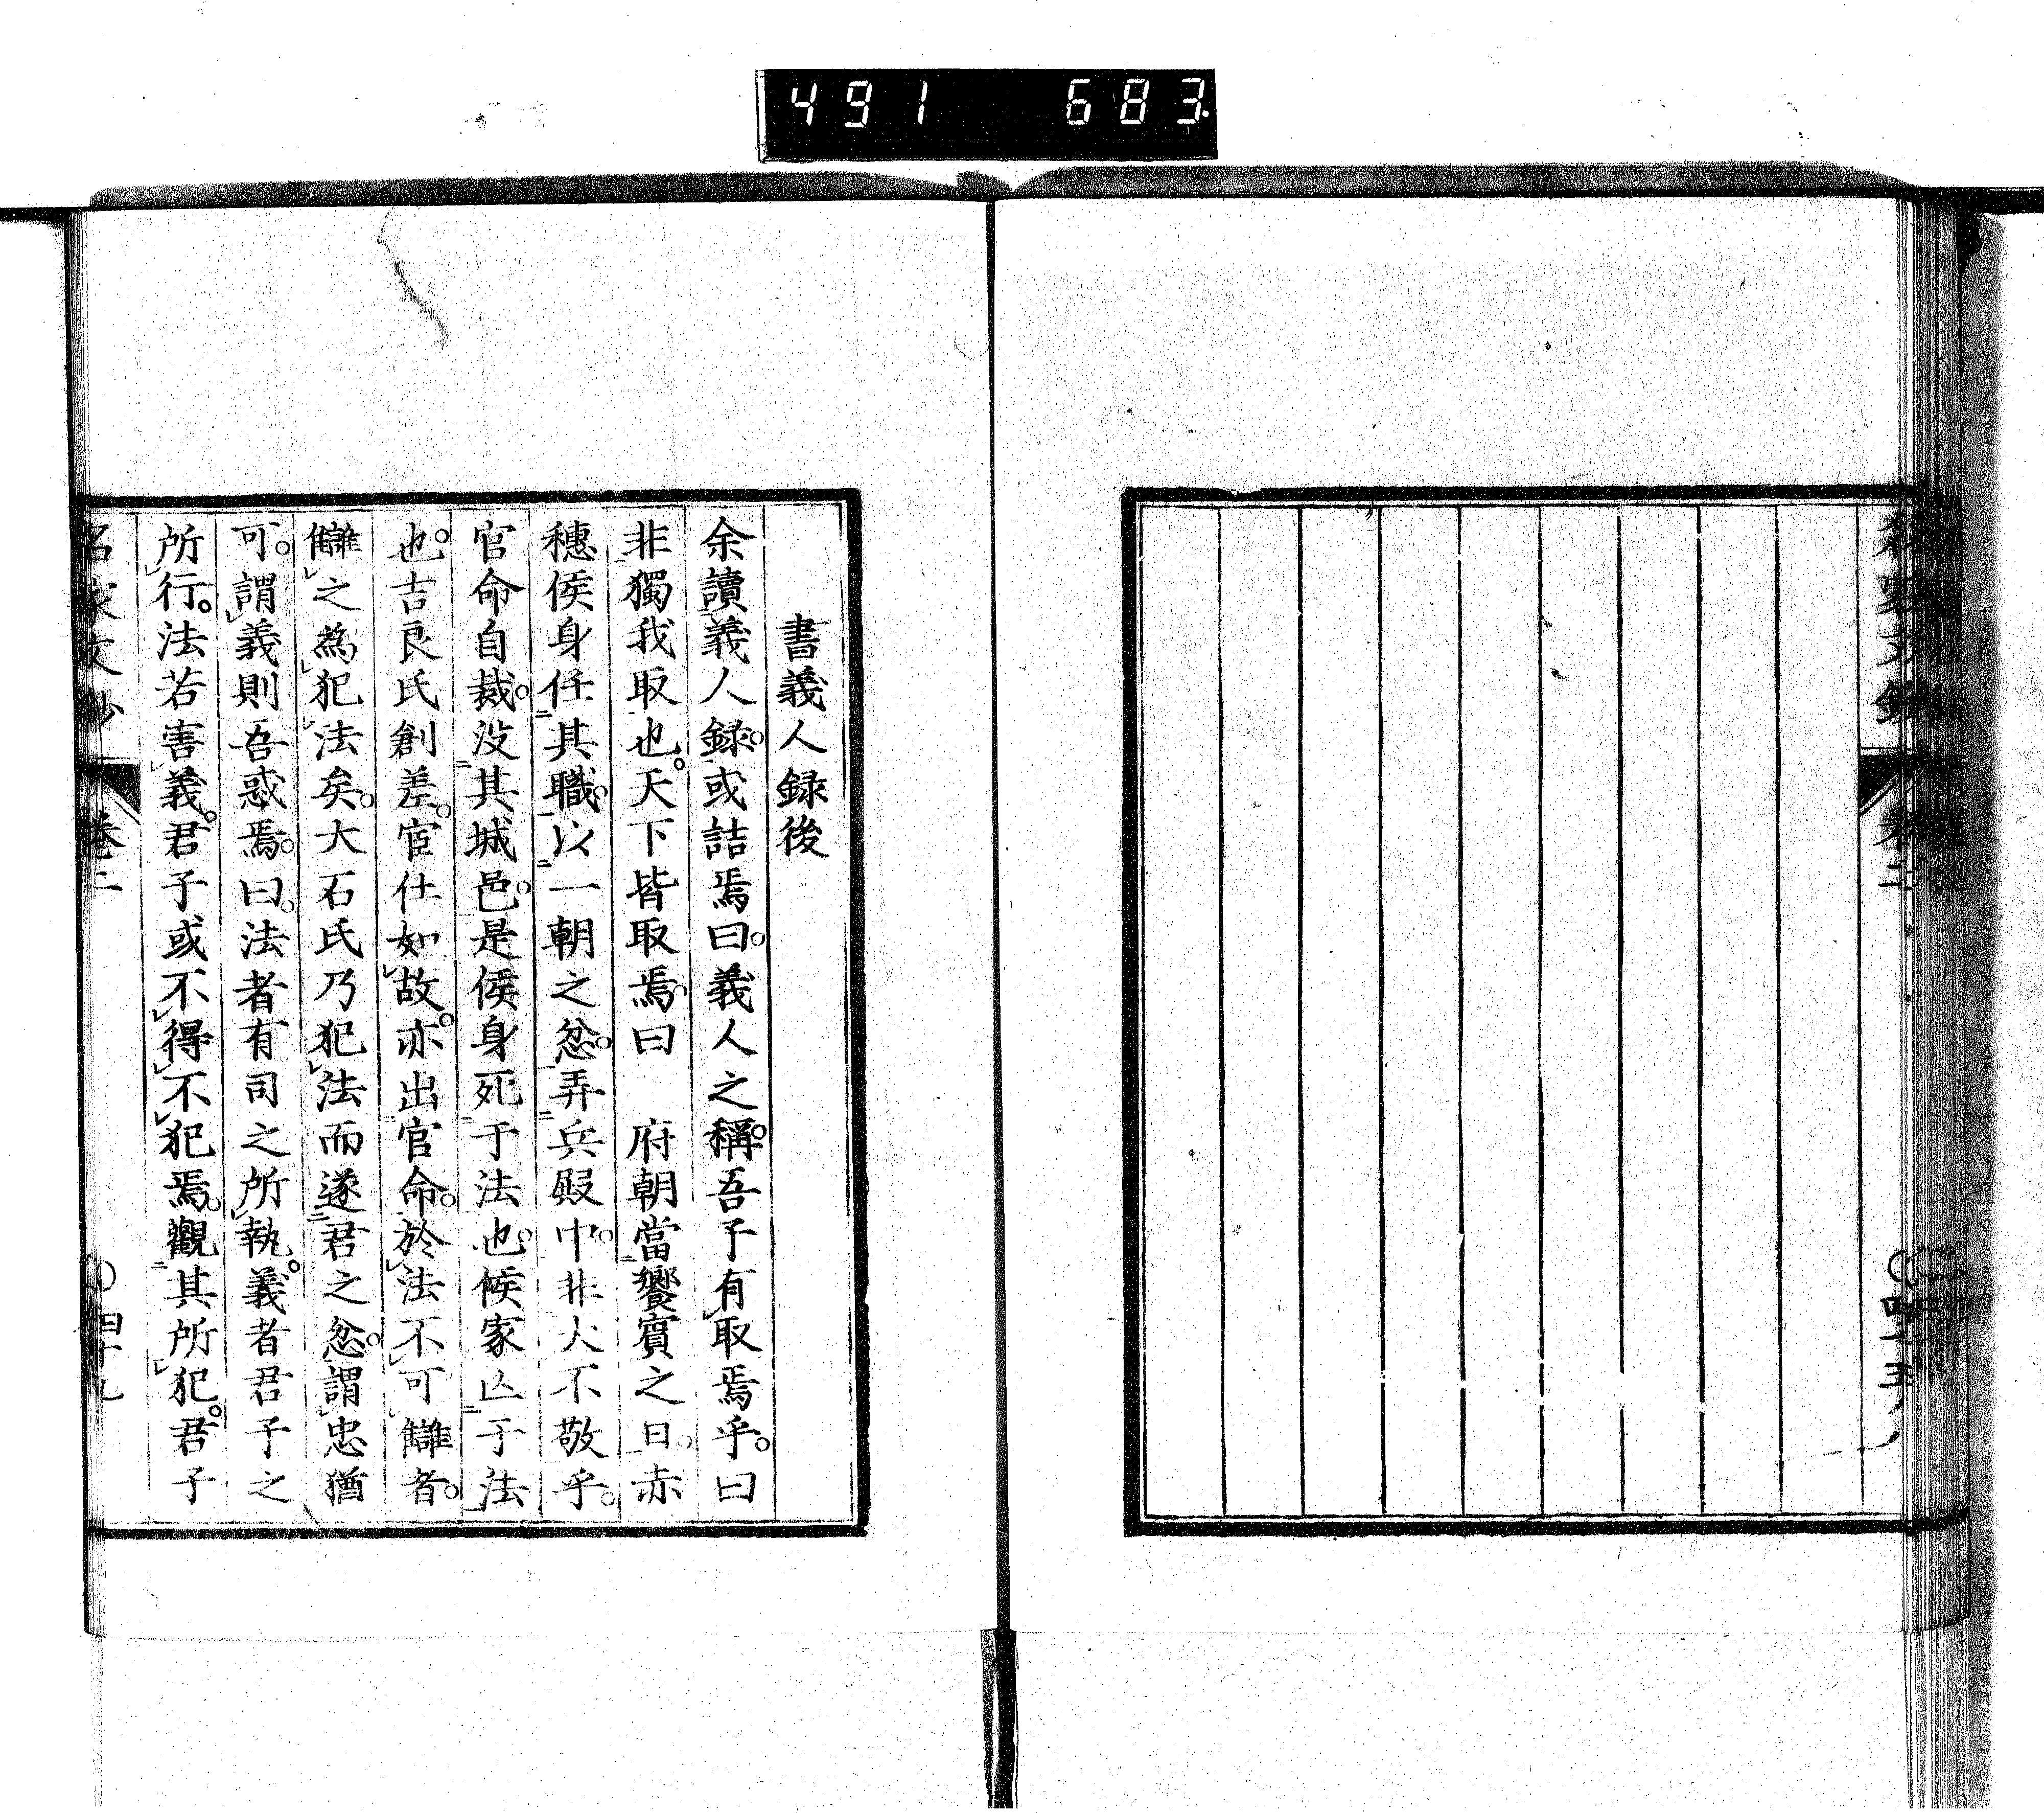 491 683
書義人録後
余讀義人録。或詰焉曰。義人之稱。吾子有取焉乎。曰
非獨我取也。天下皆取焉。曰　府朝當饗賓之日。赤
穗侯身任其職。以一朝之忿。弄兵殿中。非大不敬乎。
官命自裁。沒其城邑。是侯身死于法也。候家亾于法
也。吉良氏創差。宦仕如故。亦出官命。於法不可讎者。
讎之為犯法矣。大石氏乃犯法而遂君之忿。謂忠猶
可。謂義則吾惑焉。曰。法者有司之所執。義者君子之
所行。法若害義。君子或不得不犯焉。觀其所犯。君子
名家文抄
卷二
四十九